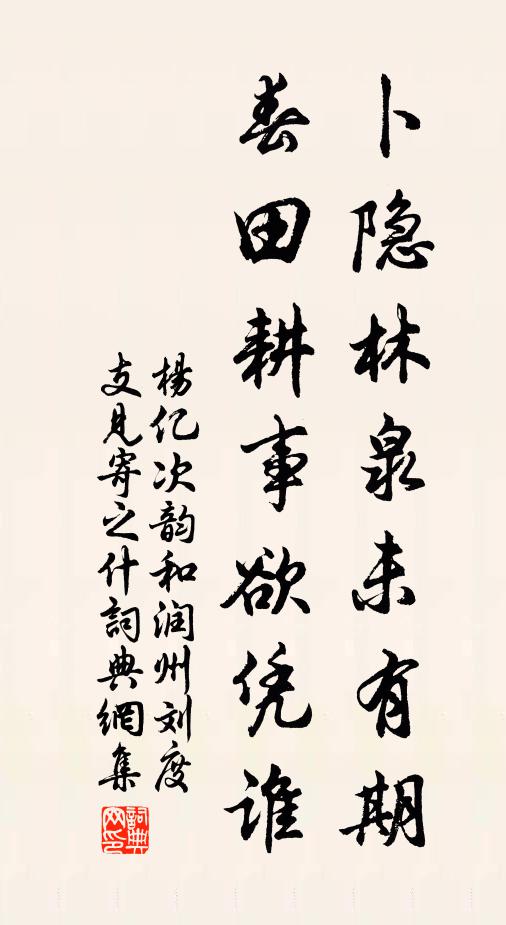 卜隐林泉未有期
春田耕事欲凭谁
杨亿次韵和润州刘度
支见寄之什词典網集
詞典網印